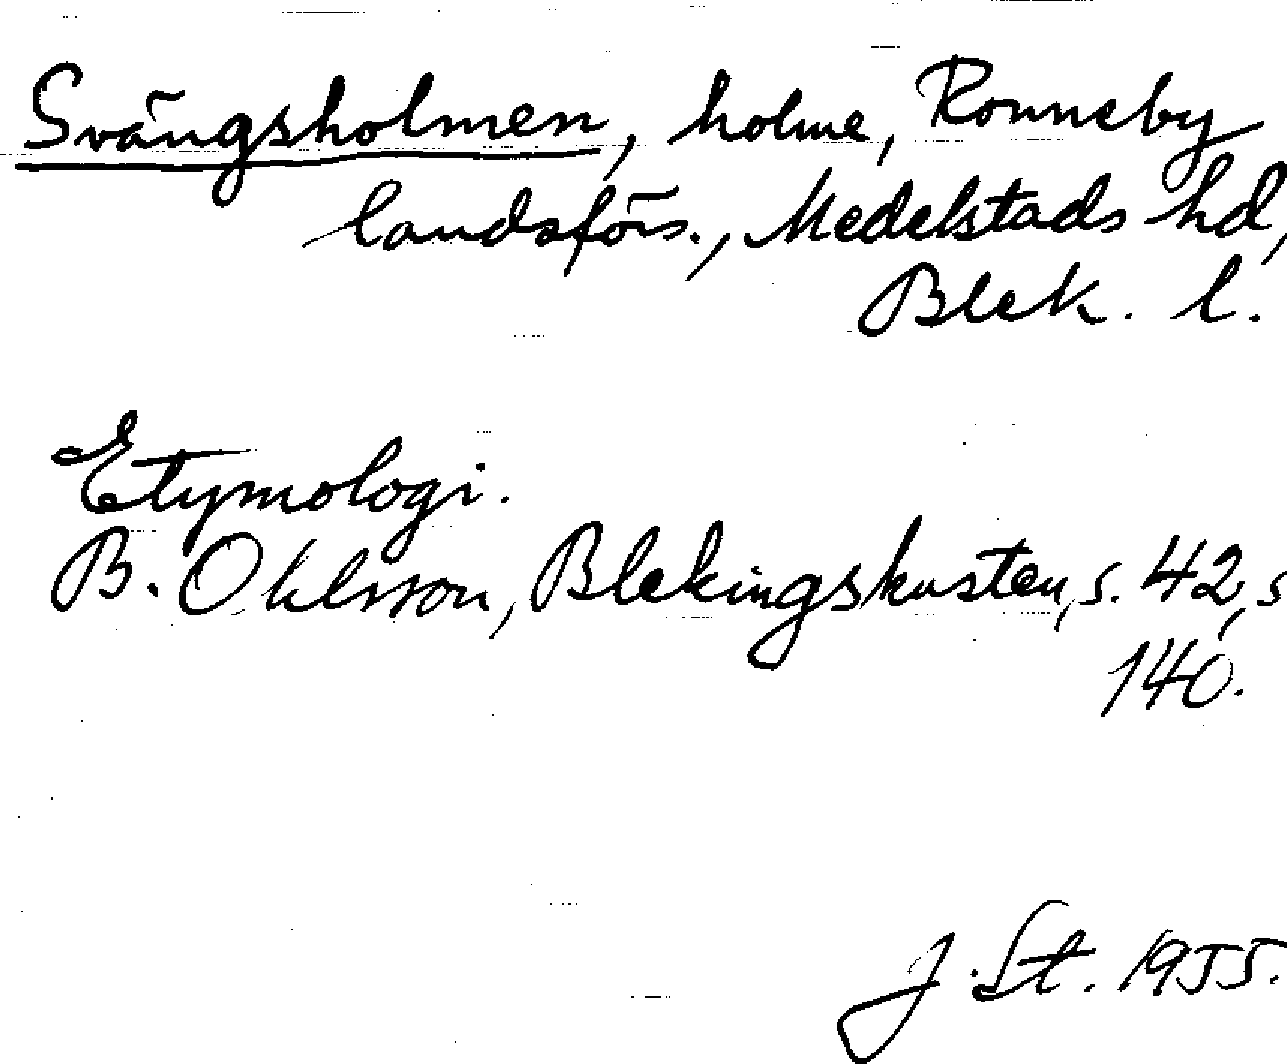 Svängsholmen, holme, Ronneby
landsförs., Medelstads hd,
Blek. l.
Etymologi.
B. Ohlsson, Blekingskusten, s. 42, s
140.
J. St. 1955.